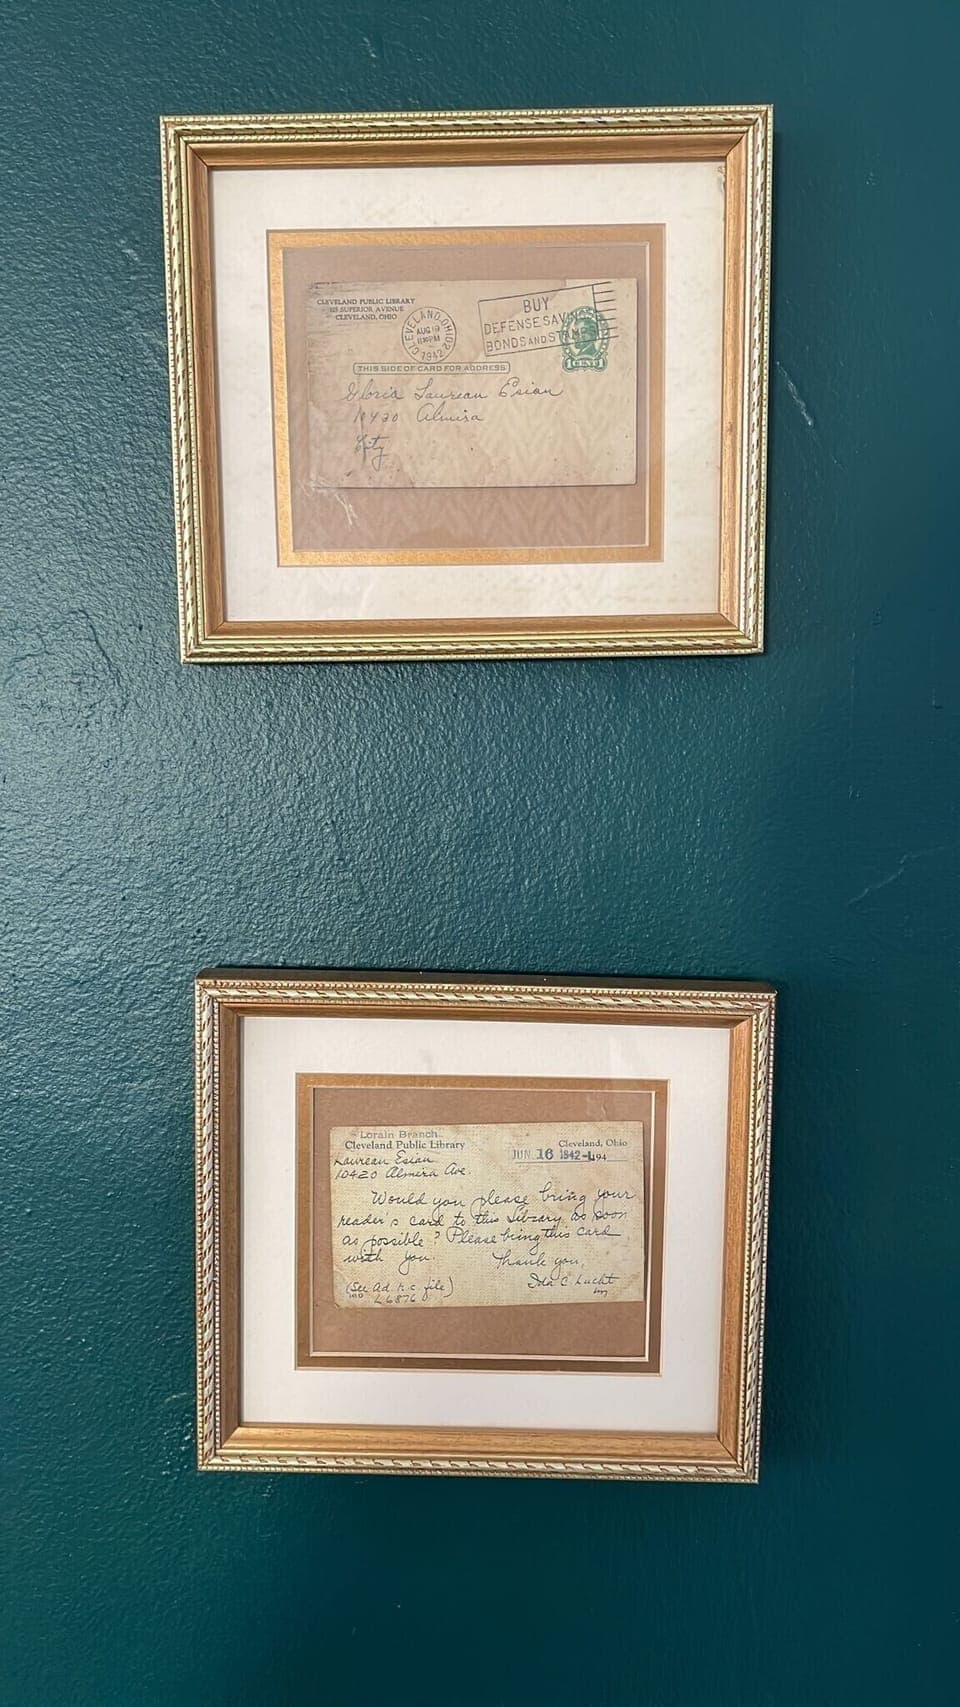 CLEVELAND PUBLIC LIBRARY
325 SUPERIOR AVENUE
CLEVELAND, OHIO
CLEVELAND, OHIO
AUG 19
1942
BUY
DEFENSE SAVINGS
BONDS AND STAMPS
1 CENT 1
THIS SIDE OF CARD FOR ADDRESS
Gloria Laurean Esian
10420 Almira
City
Lorain Branch
Cleveland Public Library
Cleveland, Ohio
JUN 16 1942 194
Laurean Esian
10420 Almira Ave.
Would you please bring your
reader's card to this Library as soon
as possible? Please bring this card
with you
Thank you,
Ida C. Lucht
(See Ad. r.c. file)
L6876